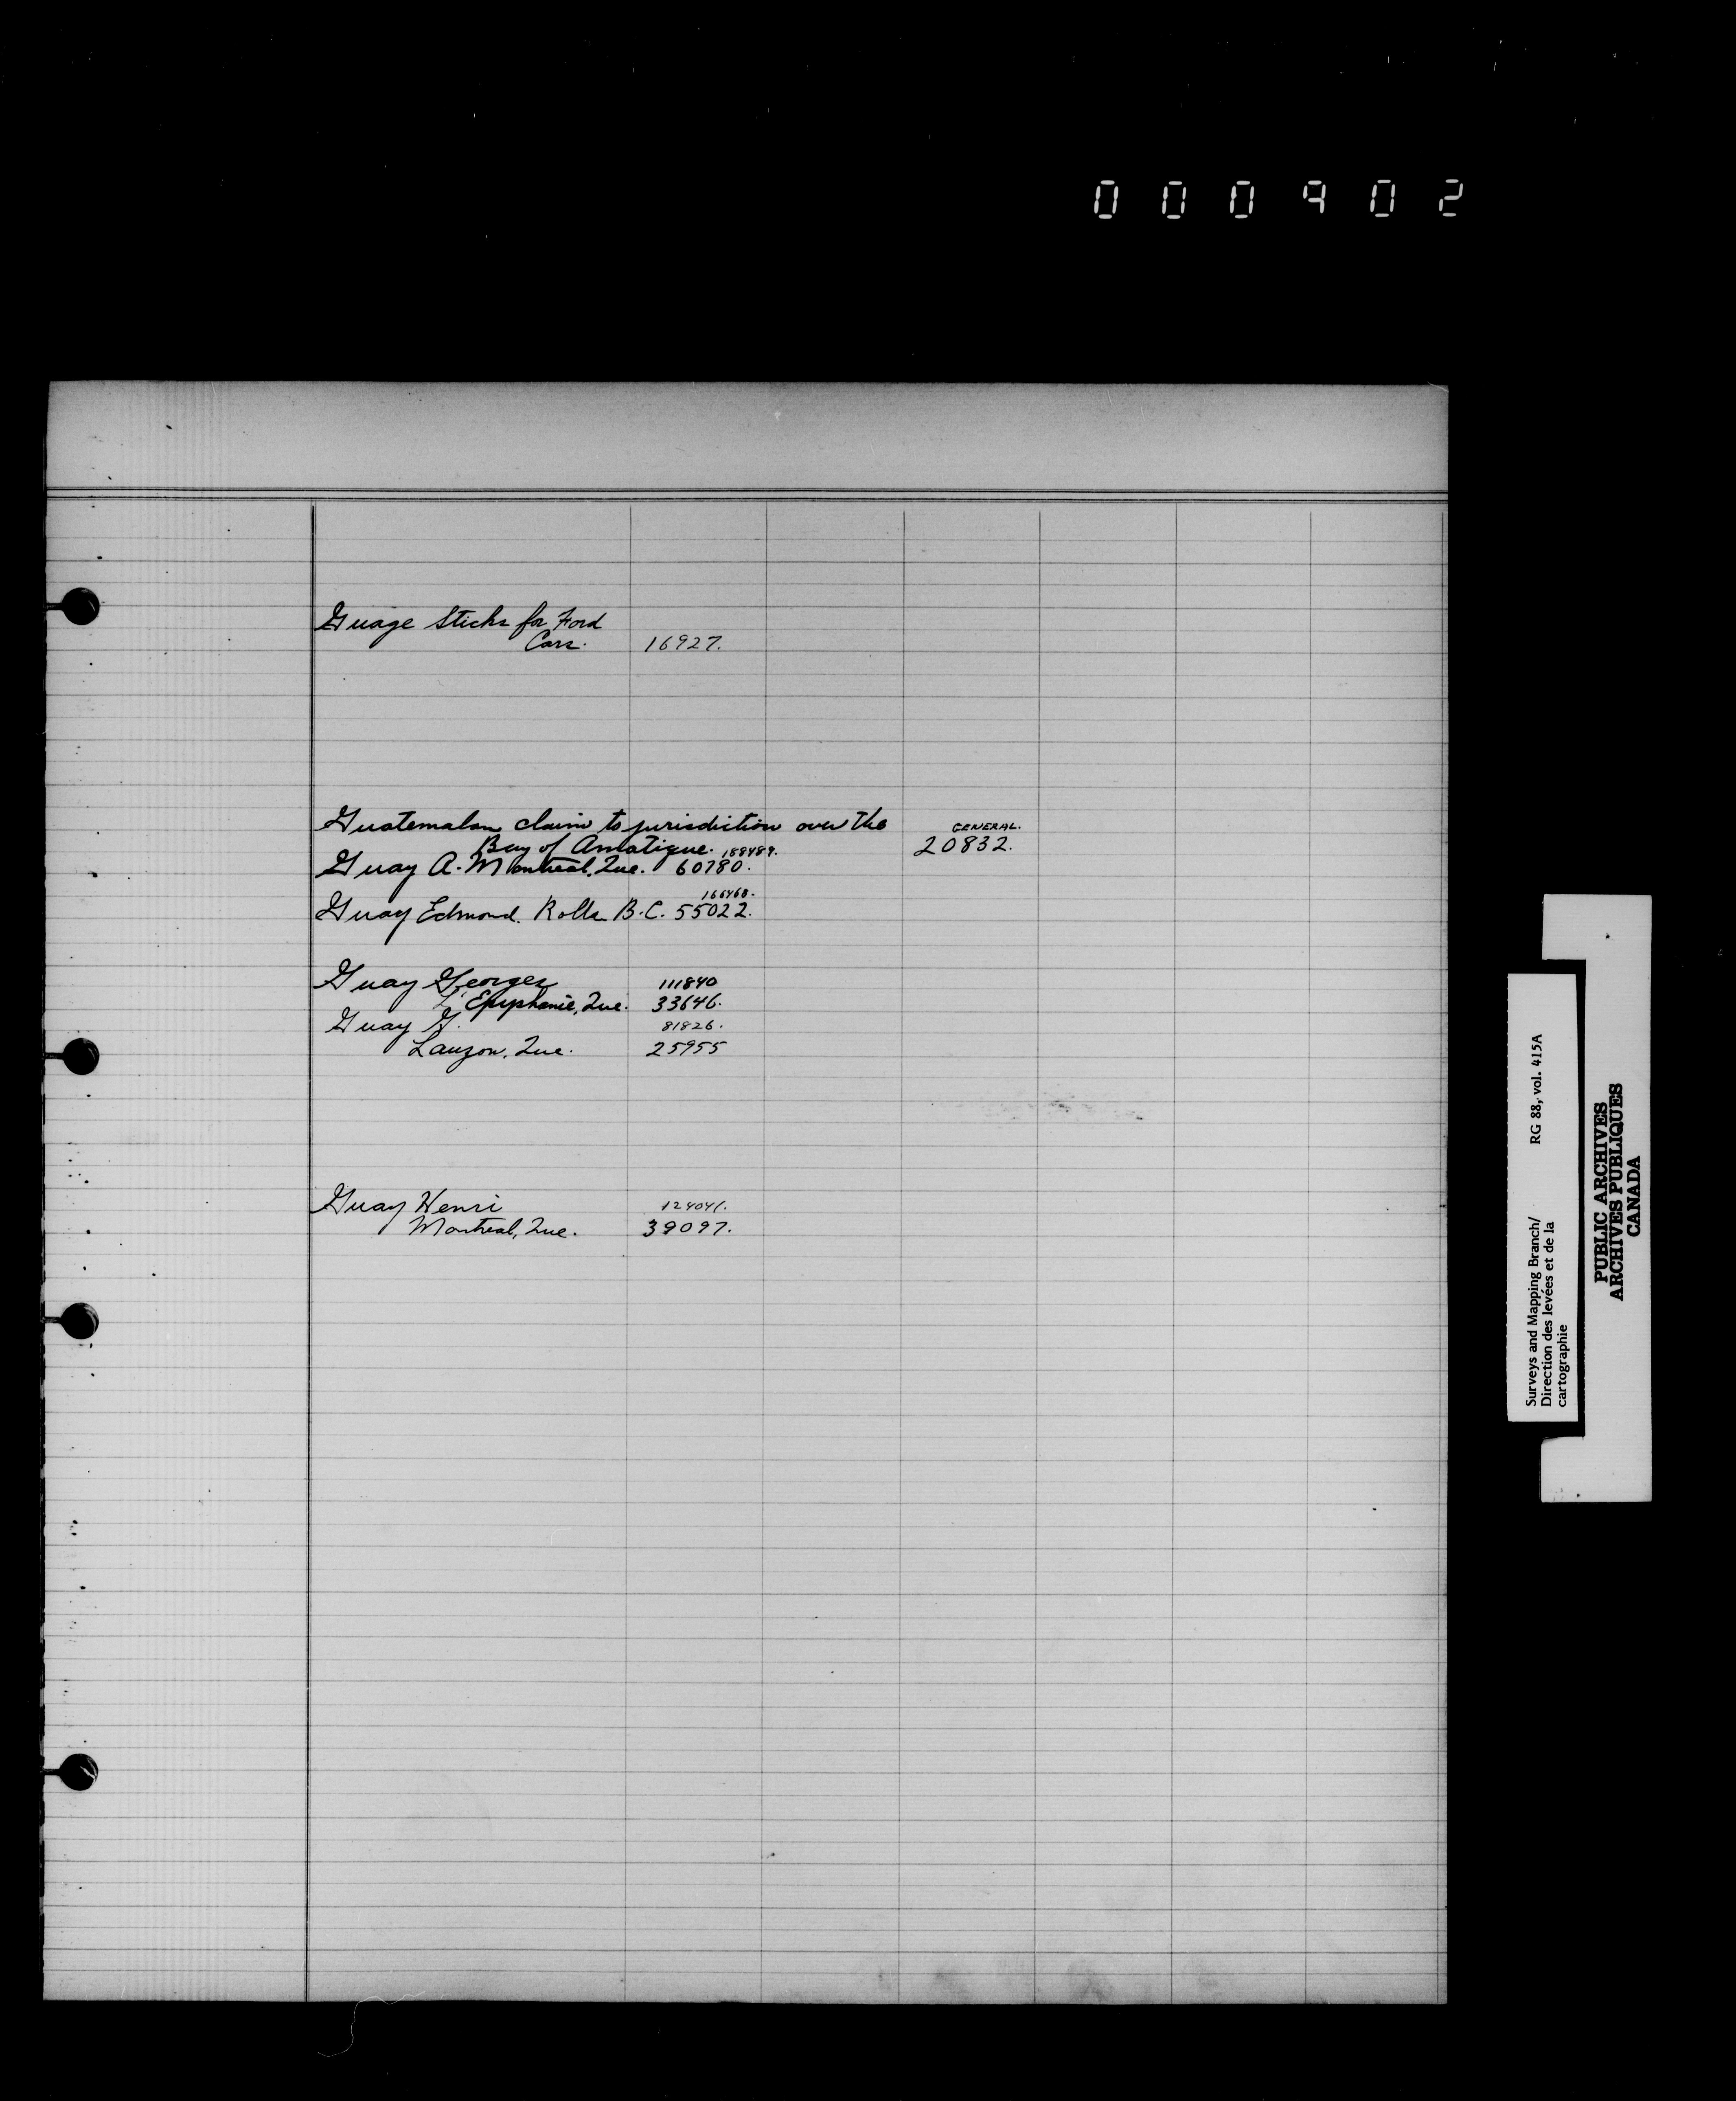 000902
Guage Sticks for Ford
Cars. 16927.
Guatemalan claim to jurisdiction over the GENERAL.
Bay of Amatique. 188489. 20832.
Guay A. Montreal, Que. 60780.
166468.
Guay Edmond. Rolla B.C. 55022.
Guay Georges 111840
L'Epiphanie, Que. 33646.
Guay G. 81826.
Lauzon, Que. 25955
Guay Henri 124041.
Montreal, Que. 39097.
Surveys and Mapping Branch/ RG 88, vol. 415A
Direction des levées et de la
cartographie
PUBLIC ARCHIVES
ARCHIVES PUBLIQUES
CANADA